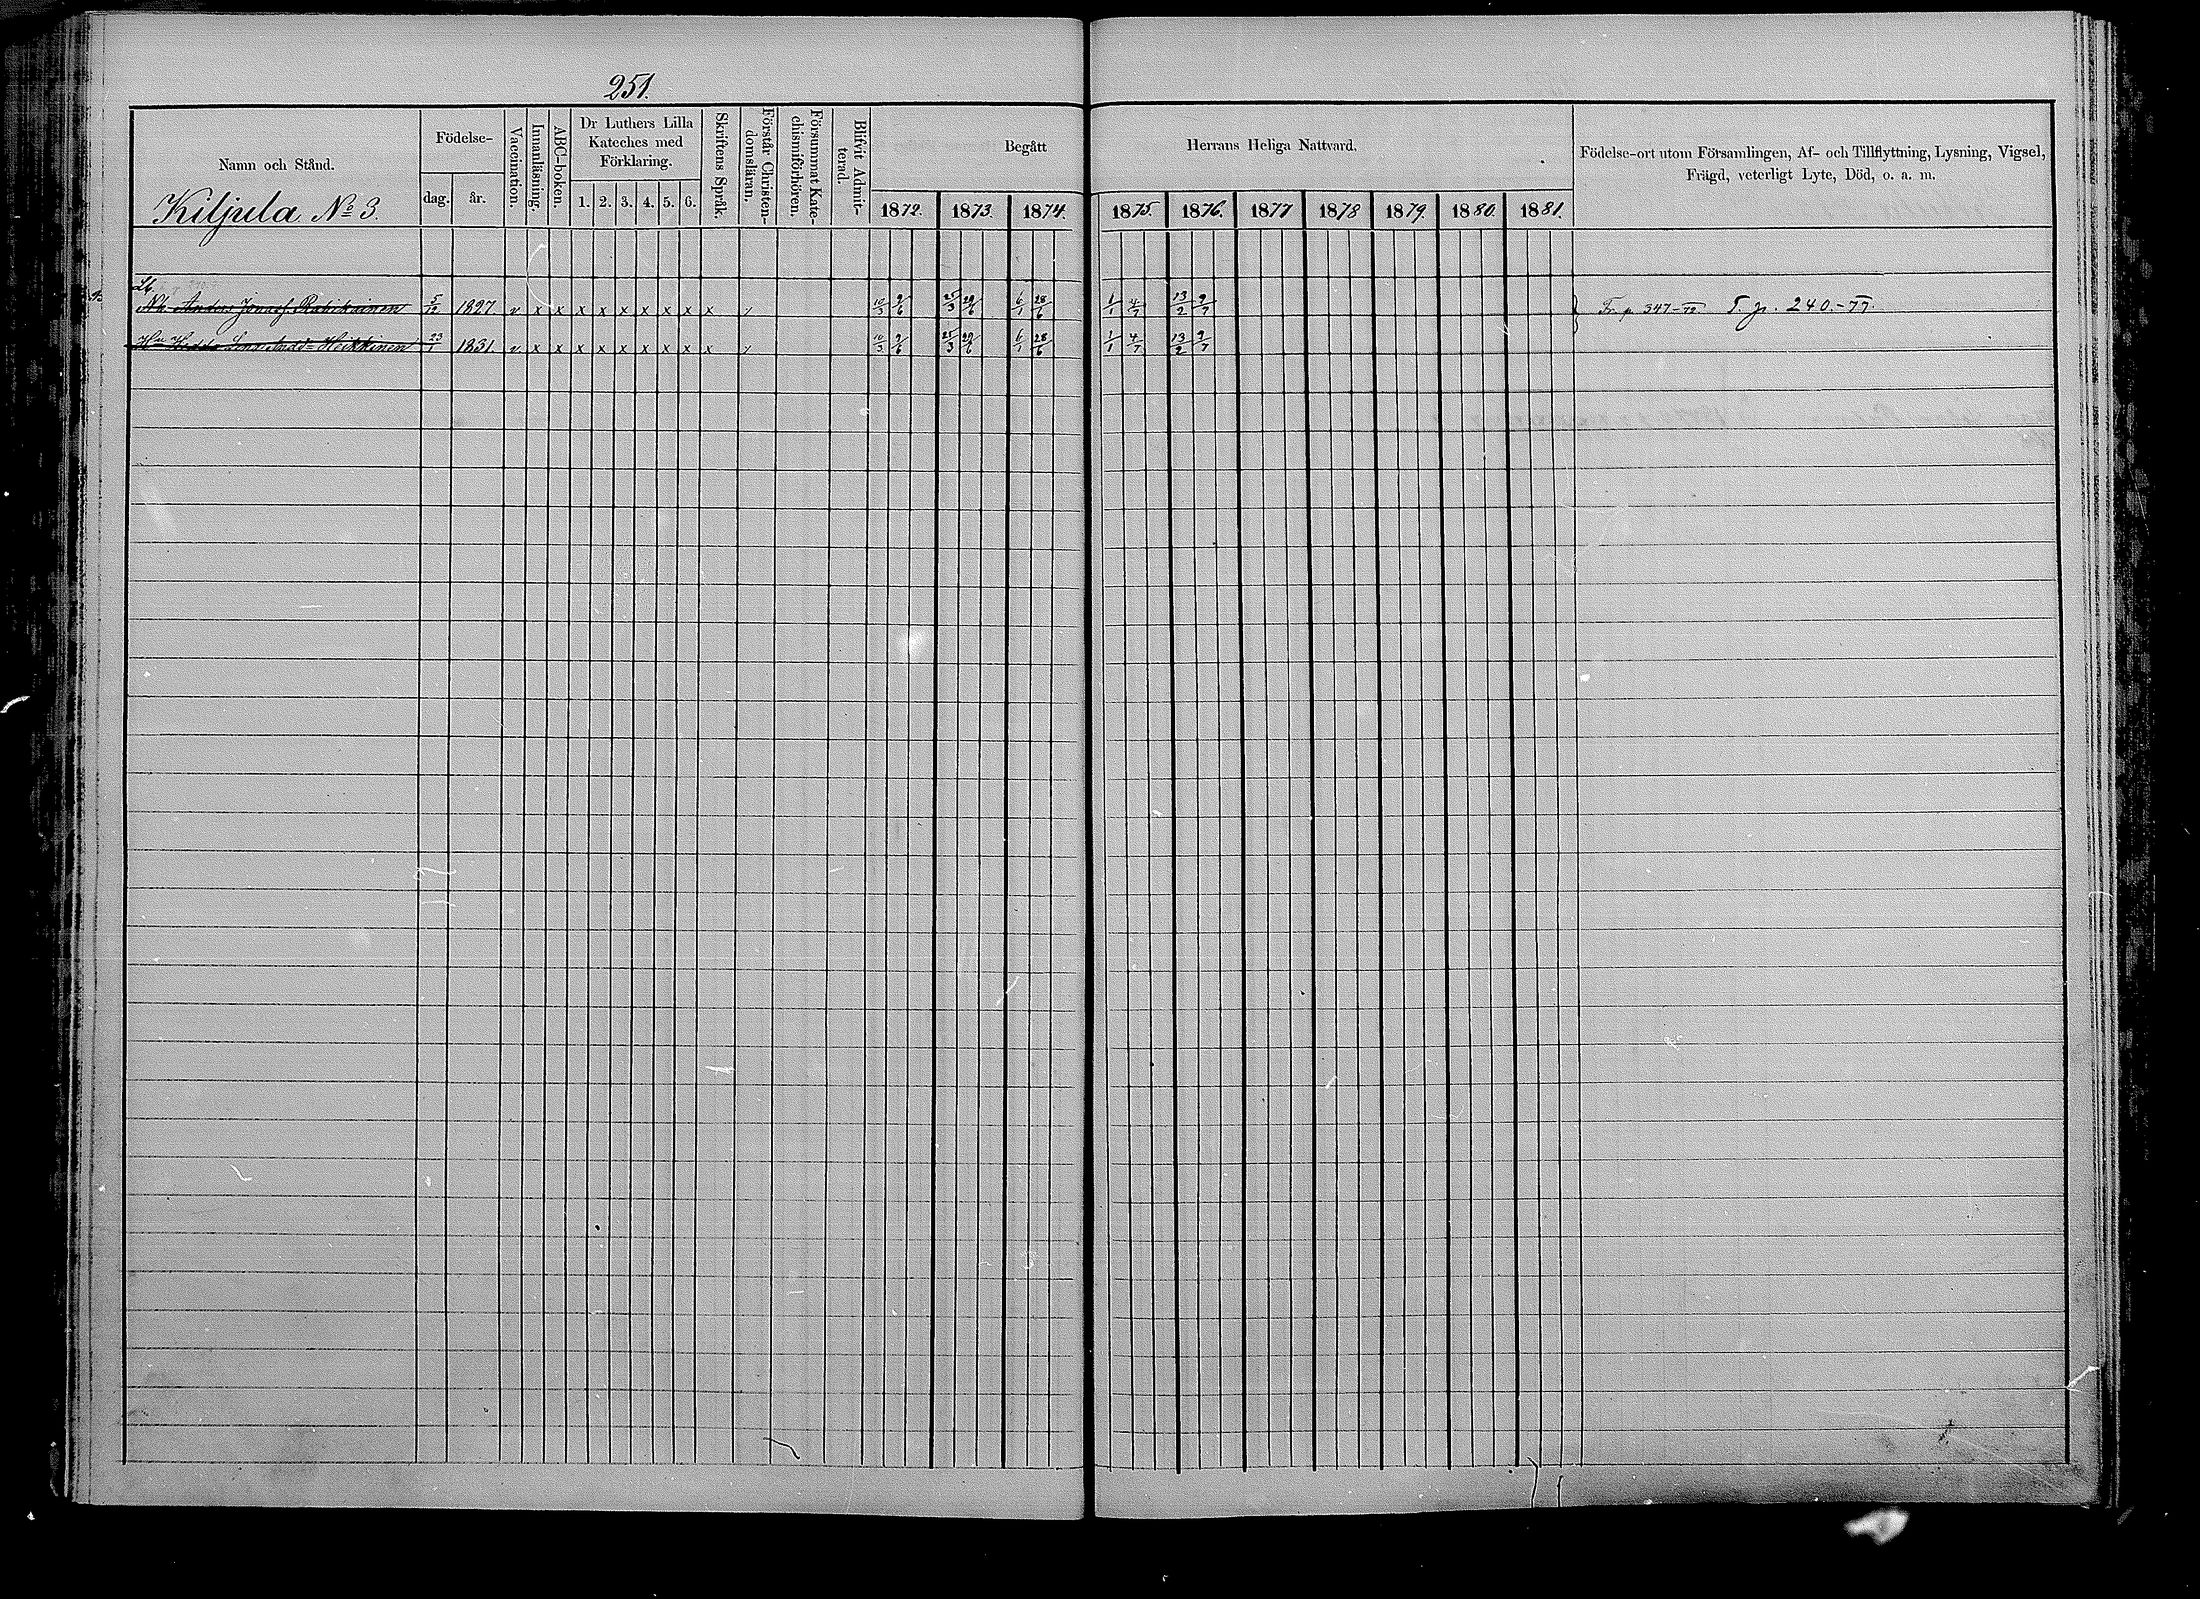 251.
Namn och Stånd.
Födelse-
dag.
år.
Vaccination.
Innanläsning.
ABC-boken.
Dr Luthers Lilla
Kateches med
Förklaring.
1. 2. 3. 4. 5. 6.
Skriftens Språk.
Förstår Christen-
domsläran.
Försummat Kate-
chismiförhören.
Blifvit Admit-
terad.
Begått Herrans Heliga Nattvard.
1872. 1873. 1874. 1875. 1876. 1877 1878 1879. 1880. 1881.
Födelse-ort utom Församlingen, Af- och Tillflyttning, Lysning, Vigsel,
Frägd, veterligt Lyte, Död, o. a. m.
Kiljula No 3.
Anders 5/12 1827. v x x x x x x x x x 10/3 9/6 25/3 29/6 6/1 28/6 1/1 4/7 13/2 9/7 Fr. p. 347-72 T. p. 240.-77.
Heikkinen 23/1 1831. v x x x x x x x x x 10/3 9/6 25/3 29/6 6/1 28/6 1/1 4/7 13/2 9/7